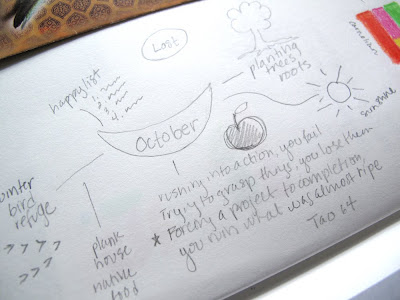 happy list
1.
2.
3.
4.
October
planting
trees
roots
sunshine
winter
bird
refuge
plank
house
native
food
rushing into action, you fail
Trying to grasp things, you lose them
* Forcing a project to completion,
you ruin what was almost ripe
Tao 64